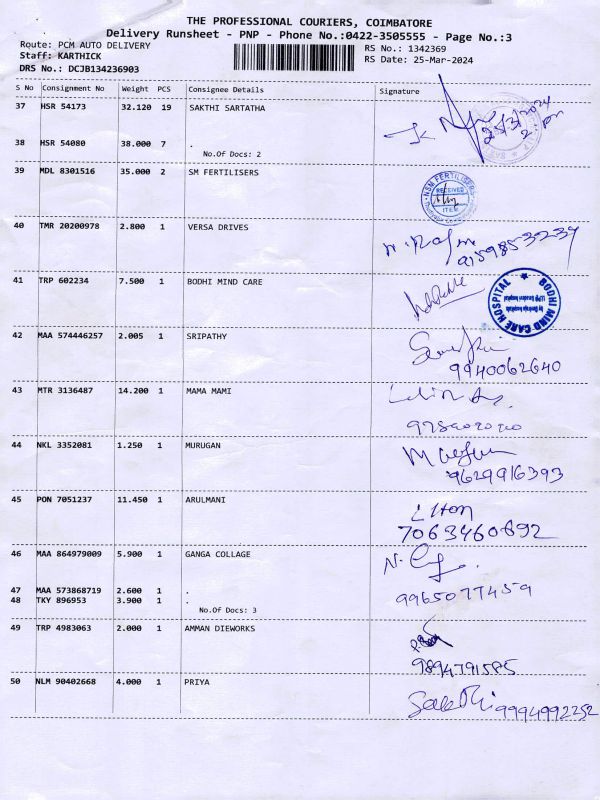 THE PROFESSIONAL COURIERS, COIMBATORE
Delivery Runsheet - PNP - Phone No.:0422-3505555 - Page No.:3
Route: PCM AUTO DELIVERY
Staff: KARTHICK
DRS No.: DCJB134236903
RS No.: 1342369
RS Date: 25-Mar-2024
S No Consignment No Weight PCS Consignee Details Signature
37 HSR 54173 32.120 19 SAKTHI SARTATHA
25/3/2024
38 HSR 54080 38.000 7 .
No.Of Docs: 2
39 MDL 8301516 35.000 2 SM FERTILISERS
NSM FERTILISERS
RECEIVED
ITEM
40 TMR 20200978 2.800 1 VERSA DRIVES
9159853234
41 TRP 602234 7.500 1 BODHI MIND CARE
BODHI MIND CARE HOSPITAL
42 MAA 574446257 2.005 1 SRIPATHY
9940062640
43 MTR 3136487 14.200 1 MAMA MAMI
44 NKL 3352081 1.250 1 MURUGAN
9629916393
45 PON 7051237 11.450 1 ARULMANI
7063460892
46 MAA 864979009 5.900 1 GANGA COLLAGE
9965077459
47 MAA 573868719 2.600 1 .
48 TKY 896953 3.900 1 .
No.Of Docs: 3
49 TRP 4983063 2.000 1 AMMAN DIEWORKS
9894791585
50 NLM 90402668 4.000 1 PRIYA
9994992252